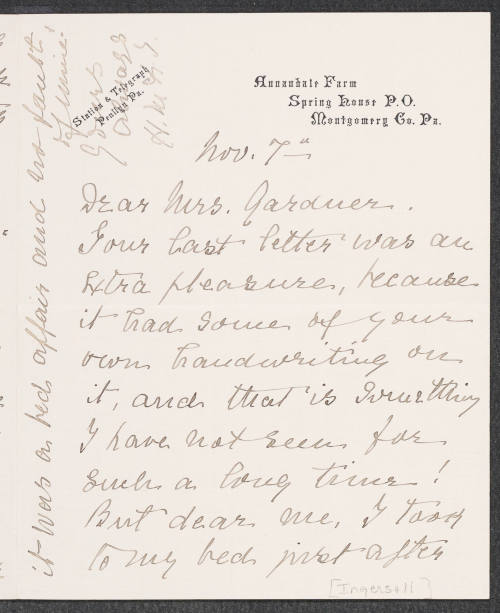 Annandale Farm
Spring House P.O.
Montgomery Co. Pa.
Station & Telegraph
Penllyn Pa.
Nov. 7"
Dear Mrs. Gardner.
Your last letter was an
extra pleasure, because
it had some of your
own handwriting on
it, and that is something
I have not seen for
such a long time!
But dear me, I took
to my bed just after
it was a bed affair and no fault
of mine!
Yours
always
[Ingersoll]